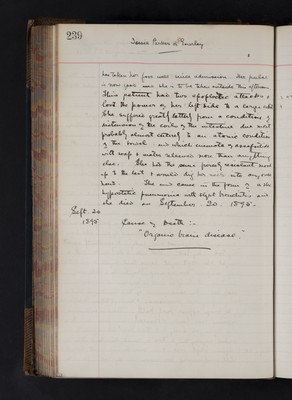 239
her take her food well since admission. Her pulse
is now good and she is to be taken outside this afternoon.
This patient had two apoplectic attacks &
lost the power of her left side to a large extent
She suffered greatly latterly from a condition of
distension of the coils of the intestine due most
probably almost entirely to an atonic condition
of the bowel and which enemata of assafoetida
with soap & water relieved more than anything
else. She had the same
up to the last & would dig her nails into any one's
hand. The end came in the form of a
hypostatic pneumonia with slight bronchitis and
she died on September 20. 1895.
Sept. 20
1895
Cause of Death :-
"Organic brain disease"